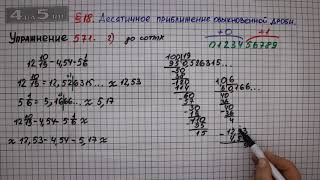 4 на 5.ru
§18. Десятичное приближение обыкновенной дроби.
Упражнение 571. 2) до сотых
+0 +1
0 1 2 3 4 5 6 7 8 9
12 10/19 - 4,54 - 5 1/6
12 10/19 = 12,526315... ≈ 12,53
5 1/6 = 5,1666... ≈ 5,17
12 10/19 - 4,54 - 5 1/6 ≈
≈ 12,53 - 4,54 - 5,17 ≈
100 19
95 0,526315...
50
38
120
114
60
57
30
19
110
95
15
10 6
6 0,166...
40
36
40
36
4
12,53